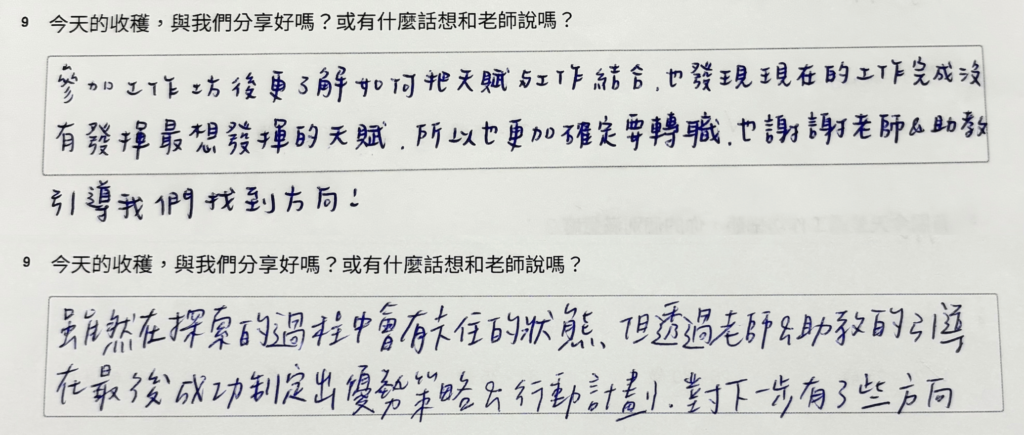 9 今天的收穫，與我們分享好嗎？或有什麼話想和老師說嗎？
參加工作坊後更了解如何把天賦与工作結合，也發現現在的工作完成沒
有發揮最想發揮的天賦，所以也更加確定要轉職，也謝謝老師&助教
引導我們找到方向！
9 今天的收穫，與我們分享好嗎？或有什麼話想和老師說嗎？
雖然在探索的過程中會有卡住的狀態、但透過老師&助教的引導
在最後成功制定出優勢策略&行動計劃，對下一步有了些方向